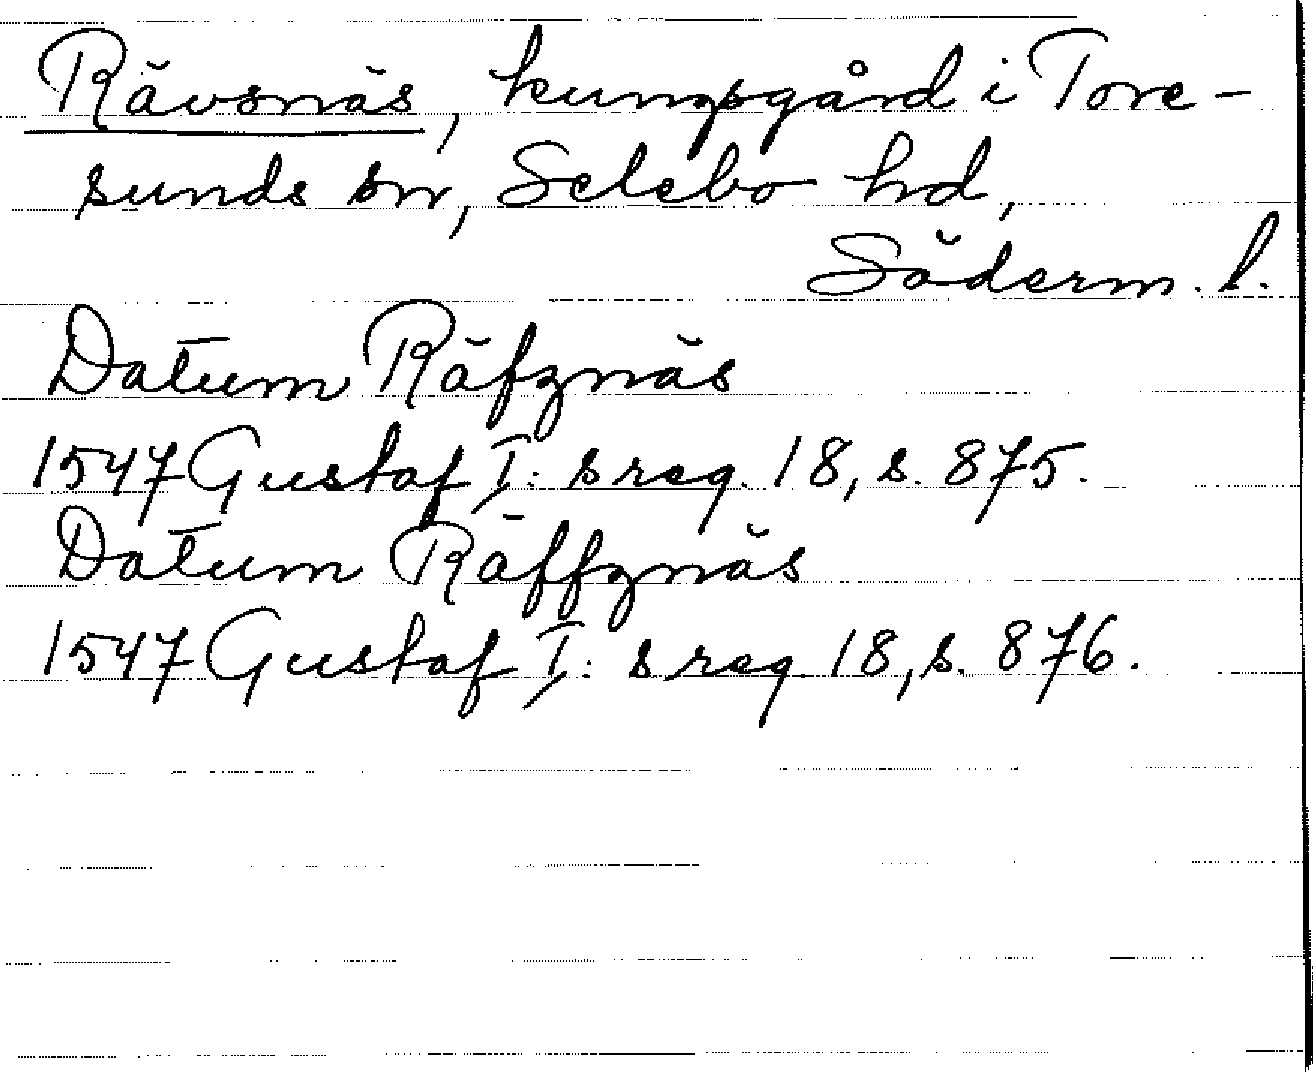 Rävsnäs, kungsgård i Tore-
sunds sn, Selebo hd,
Söderm. l.
Datum Räfznäs
1547 Gustaf I: s reg. 18, s. 875.
Datum Räffznäs
1547 Gustaf I: s reg. 18, s. 876.